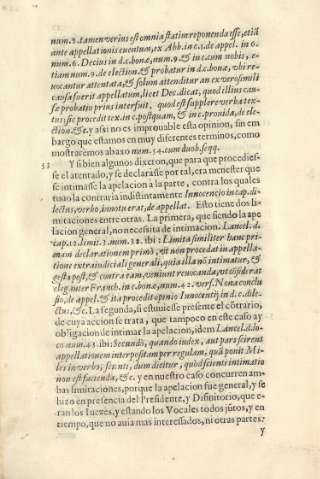 num. 3. tamen verius est omnia statim reponenda esse, etiã
ante appellationis euentum, ex Abb. in c. 1. de appel. in 6.
num. 6. Decius in d. c. bonæ, num. 9. & in c. cum nobis, e-
tiam num. 9. de election. & probatur in d. c. bonæ, vbi re-
uocantur attentata, & solum attenditur an ex verosimili
causa fuerit appellatum, licet Dec. dicat, quod illius cau-
se probatio prius interfuit, quod est supplere verba tex-
tus, sic procedit tex. in c. postquam, & in c. prouida, de ele-
ction. &c. y assi no es improuable esta opinion, sin em
bargo que estamos en muy diferentes terminos, como
mostraremos abaxo num. 54. cum duob. seqq.
53 Y si bien algunos dixeron, que para que procedies-
se el atentado, y se declarasse por tal, era menester que
se intimasse la apelacion a la parte, contra los quales
tuuo la contraria indistintamente Innocencio in cap. di-
lectus, verbo, innotuerat, de appellat. Esto tiene dos li-
mitaciones entre otras. La primera, que siendo la ape
lacion general, no necessita de intimacion. Lancel. d.
cap. 12. limit. 2. num. 38. ibi: Limita similiter hanc pri-
mam declarationem primò, vt non procedat in appella-
tione extraiudiciali generali, quia illa nõ intimatur, &
gesta post, & contra eam, veniunt reuocanda, vt cõsiderat
eleganter Franch. in c. bonæ, num. 42. vers. Non a conclu
sio, de appel. & ita procedit opinio Innocentij in d. c. dile-
ctus, &c. La segunda, si estuuiesse presente el cõtrario,
de cuya accion se trata, que tampoco en este caso ay
obligacion de intimar la apelacion, idem Lancel. d. lo-
co num. 43. ibi: Secundò, quando index, aut pars scirent
appellationem interpositam per regulam, quã ponit Mi-
les in verbo, scenti, dum dicitur, quòd scienti intimatio
non est facienda, &c. y en nuestro caso concurren am-
bas limitaciones, porque la apelacion fue general, y se
hizo en presencia del Presidente, y Difinitorio, que e-
ran los Iuezes, y estando los Vocales todos jũtos, y en
tiempo, que no auia mas interessados, ni otras partes:
y